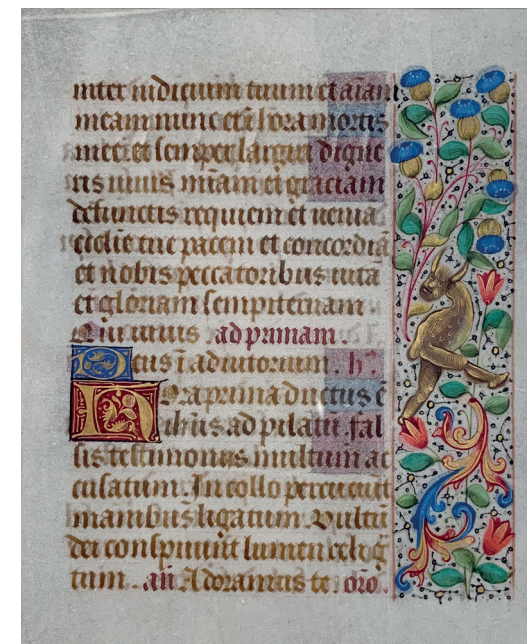 inter iudicium tuum et aīam
meam nunc et ī hora mortis
mee et semper largiri digne
ris uiuis mīam et graciam
defunctis requiem et uenia
ecclie tue pacem et concordiā
et nobis peccatoribus uita
et gloriam sempiternam.
Qui uiuis ad primam.
Deus ī adiutorium. h'.
Hora prima ductus ē
ihūs ad pilatū. fal
sis testimoniis multum ac
cusatum. In collo percuciūt
manibus ligatum. Vultū
dei conspuunt lumen celeg
tum. an̄ Adoramus te. oro.